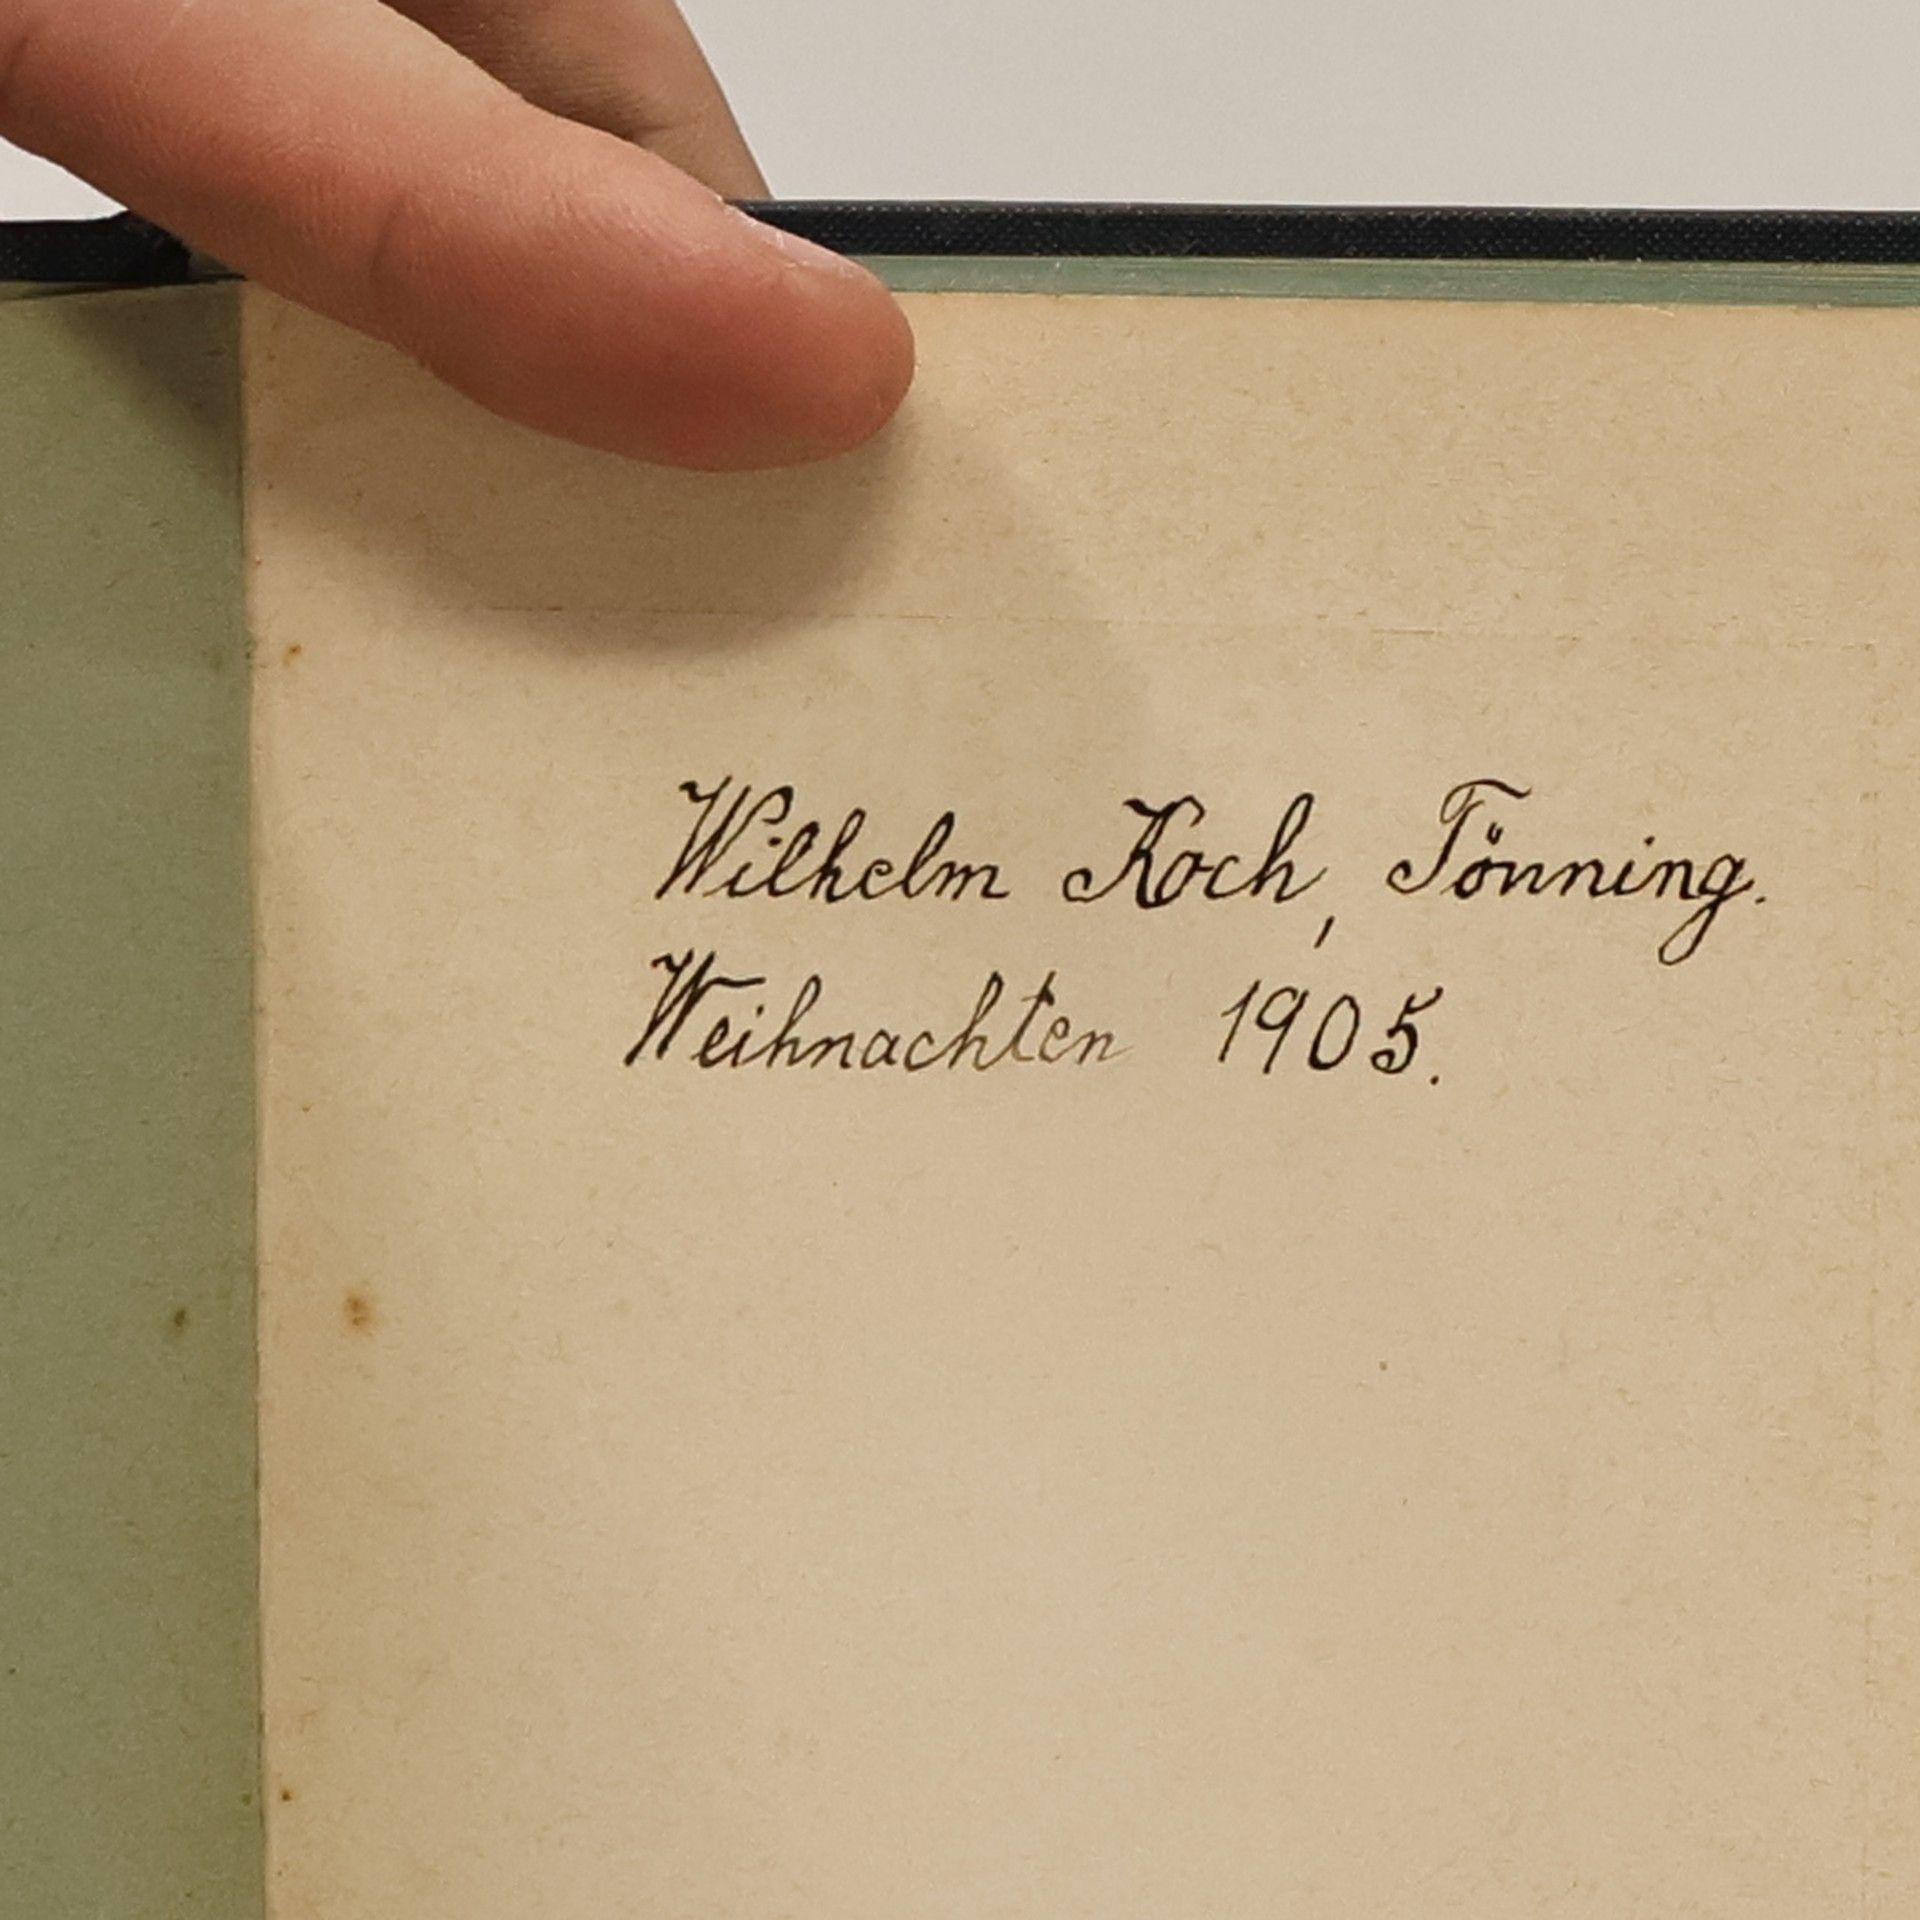 Wilhelm Koch, Tönning.
Weihnachten 1905.